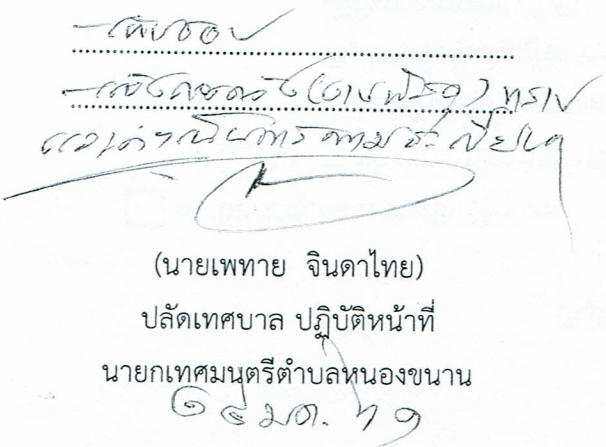 - เห็นชอบ
- แจ้งกองคลัง (งานพัสดุ) ทราบ
และดำเนินการตามระเบียบฯ
(นายเพทาย จินดาไทย)
ปลัดเทศบาล ปฏิบัติหน้าที่
นายกเทศมนตรีตำบลหนองขนาน